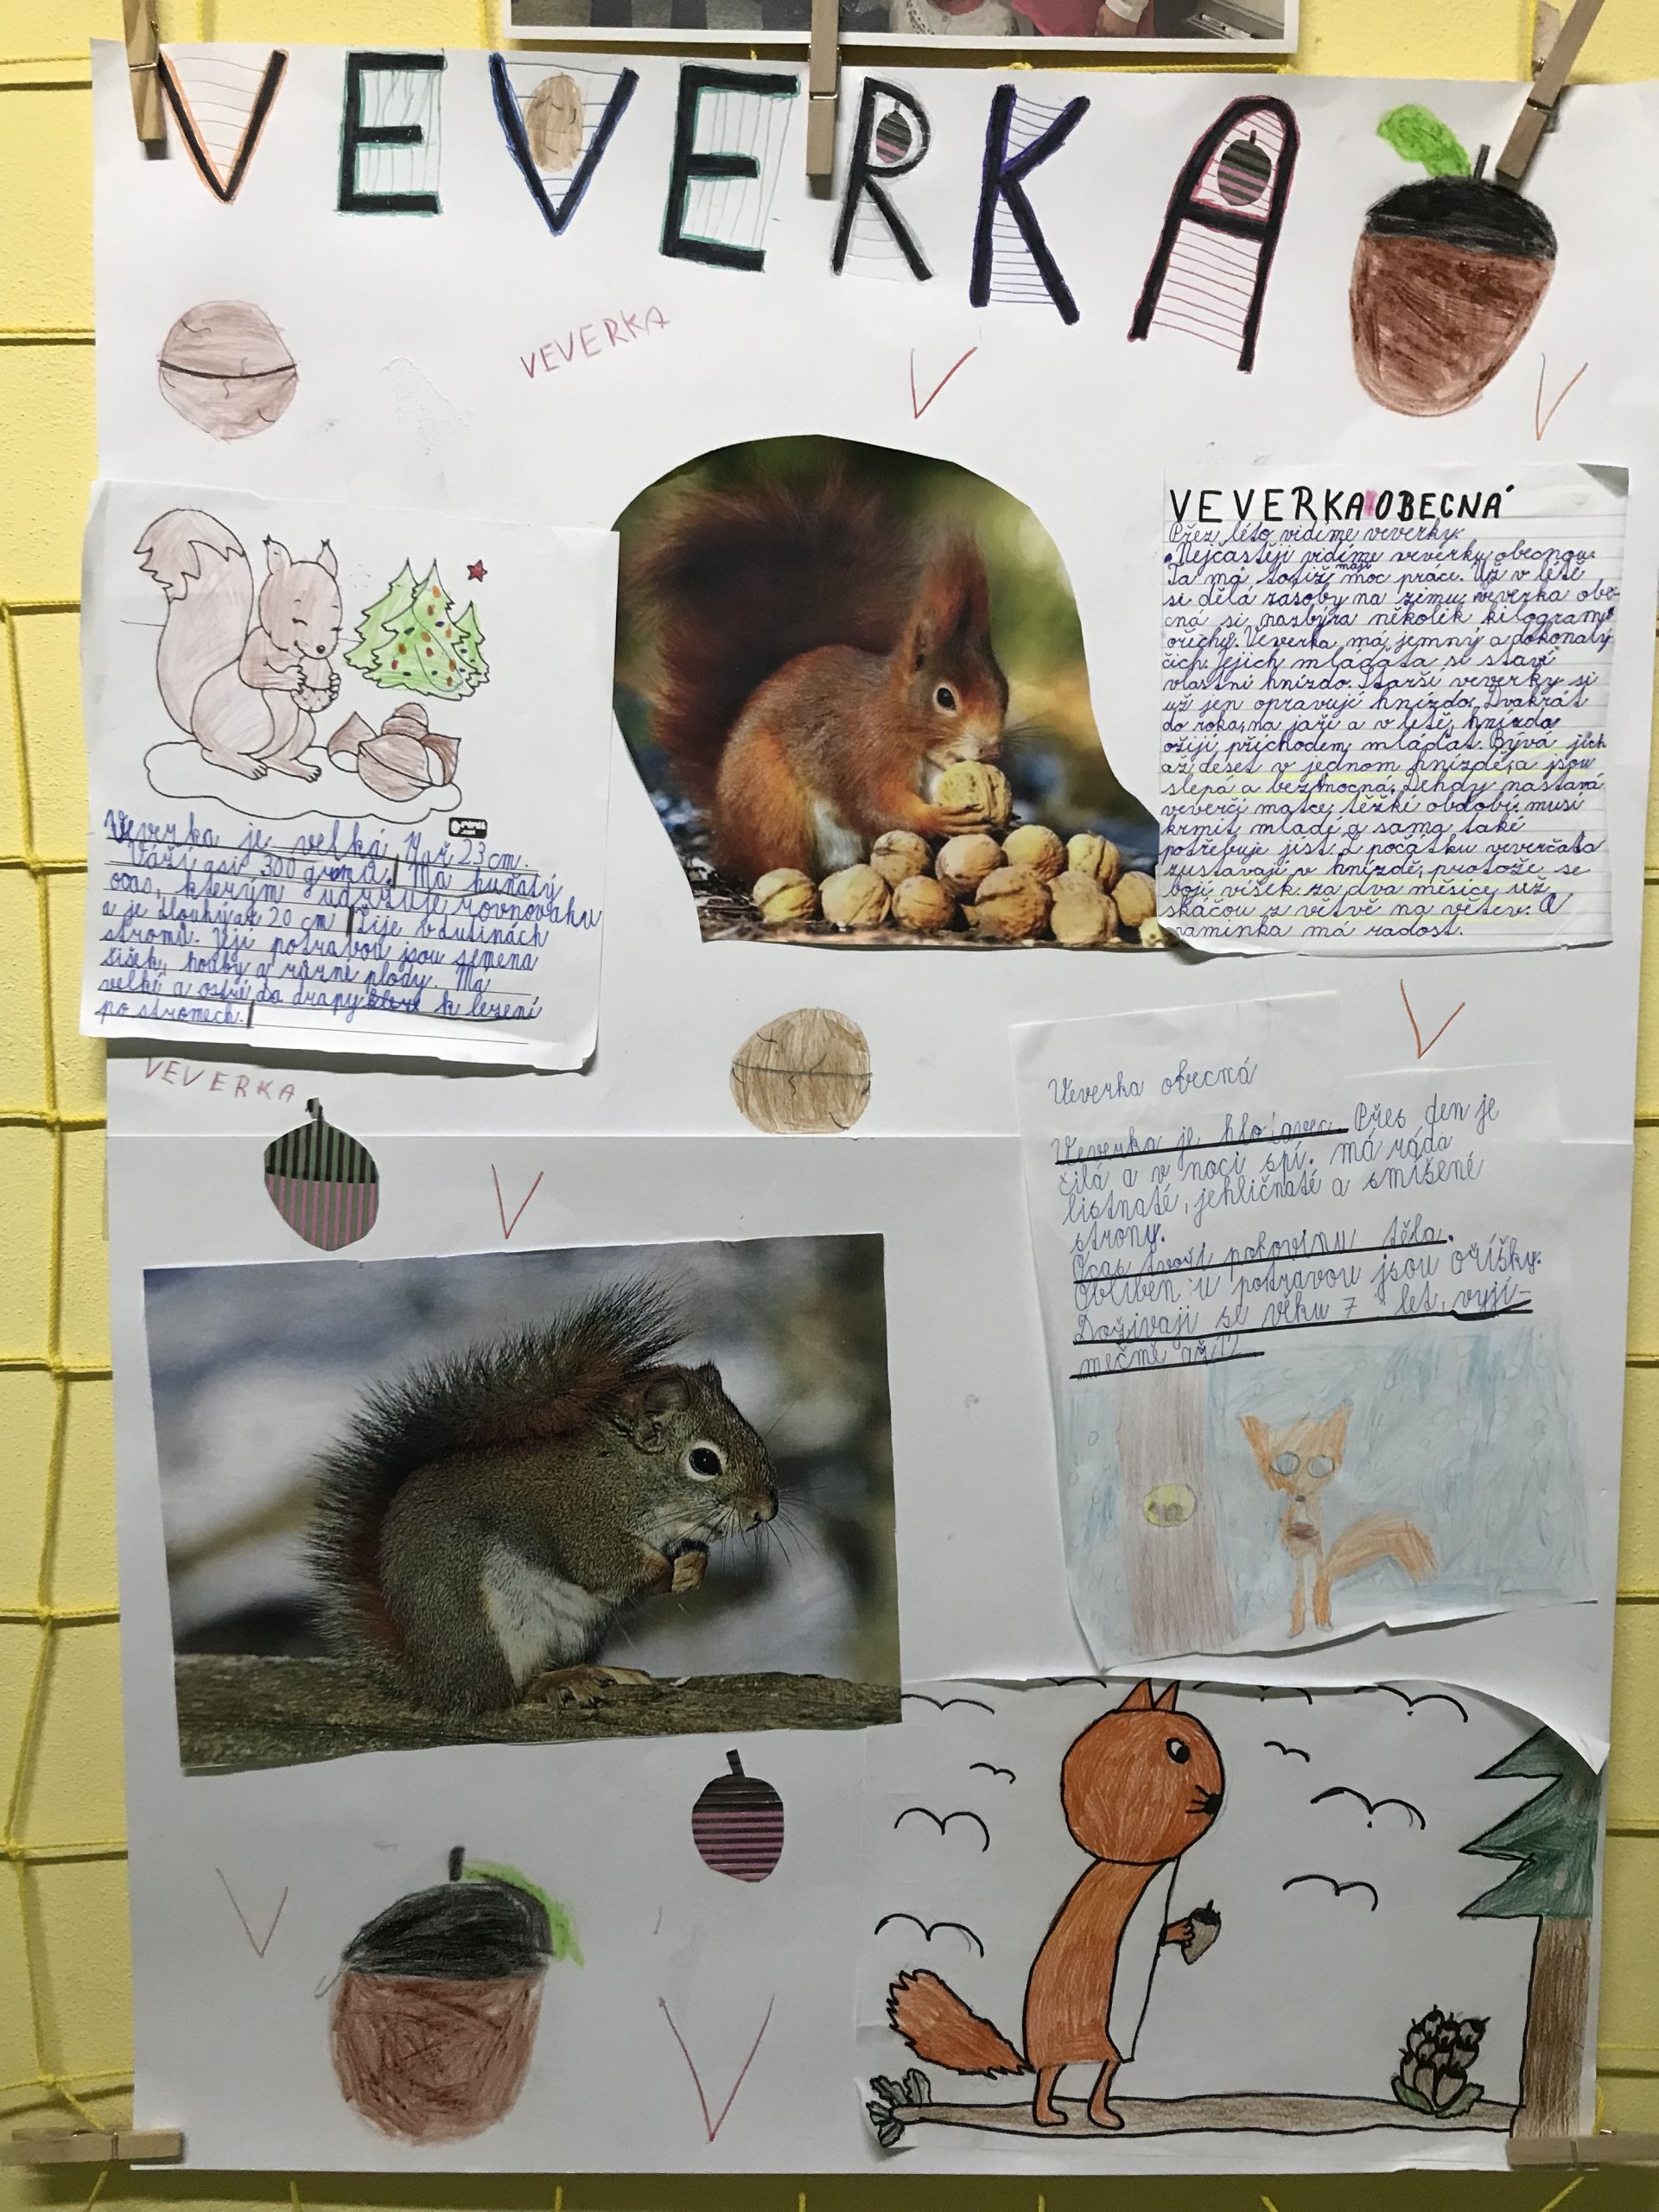 VEVERKA
VEVERKA
V
V
VEVERKA OBECNÁ
Přez léto vidíme veverky.
Nejčastěji vidíme veverku obecnou.
Ta má totiž moc práce. Už v létě
si dělá zásoby na zimu, veverka obe-
cná si nazbýra několik kilogramů
ořichy. Veverka má jemný a dokonalý
čich. Jejich mláďata si staví
vlastní hnízdo. Starší veverky si
už jen opravuje hnízdo. Dvakrát
do roka, na jaře a v létě, hnízda
ožijí příchodem mláďat. Bývá jich
až deset v jednom hnízdě, a jsou
slepá a bezmocná. Tehdy nastává
veverčí matce těžké období, musí
krmit mladé a sama také
potřebuje jíst. Z počátku veverčata
zustavají v hnízdě, protože se
bojí výšek. za dva měsíce už
skáčou z větvě na větev. A
maminka má radost.
Veverka je velká Nař 23 cm.
Váží asi 300 gramů. Má huňatý
ocas, kterým udržuje rovnováhu
a je dlouhý až 20 cm Žije v dutinách
stromů. Její potravou jsou semena
šišek, houby a různé plody. Má
velké a ostré drapy které k lezení
po stromech.
V
VEVERKA
V
Veverka obecná
Veverka je hlodavec. Přes den je
čilá a v noci spí. má ráda
listnaté, jehličnaté a smíšené
stromy.
Ocas tvoří polovinu těla.
Obliben u potravou jsou oříšky.
Dožívaji se věku 7 let, vyji-
mečmě až 12
V
V